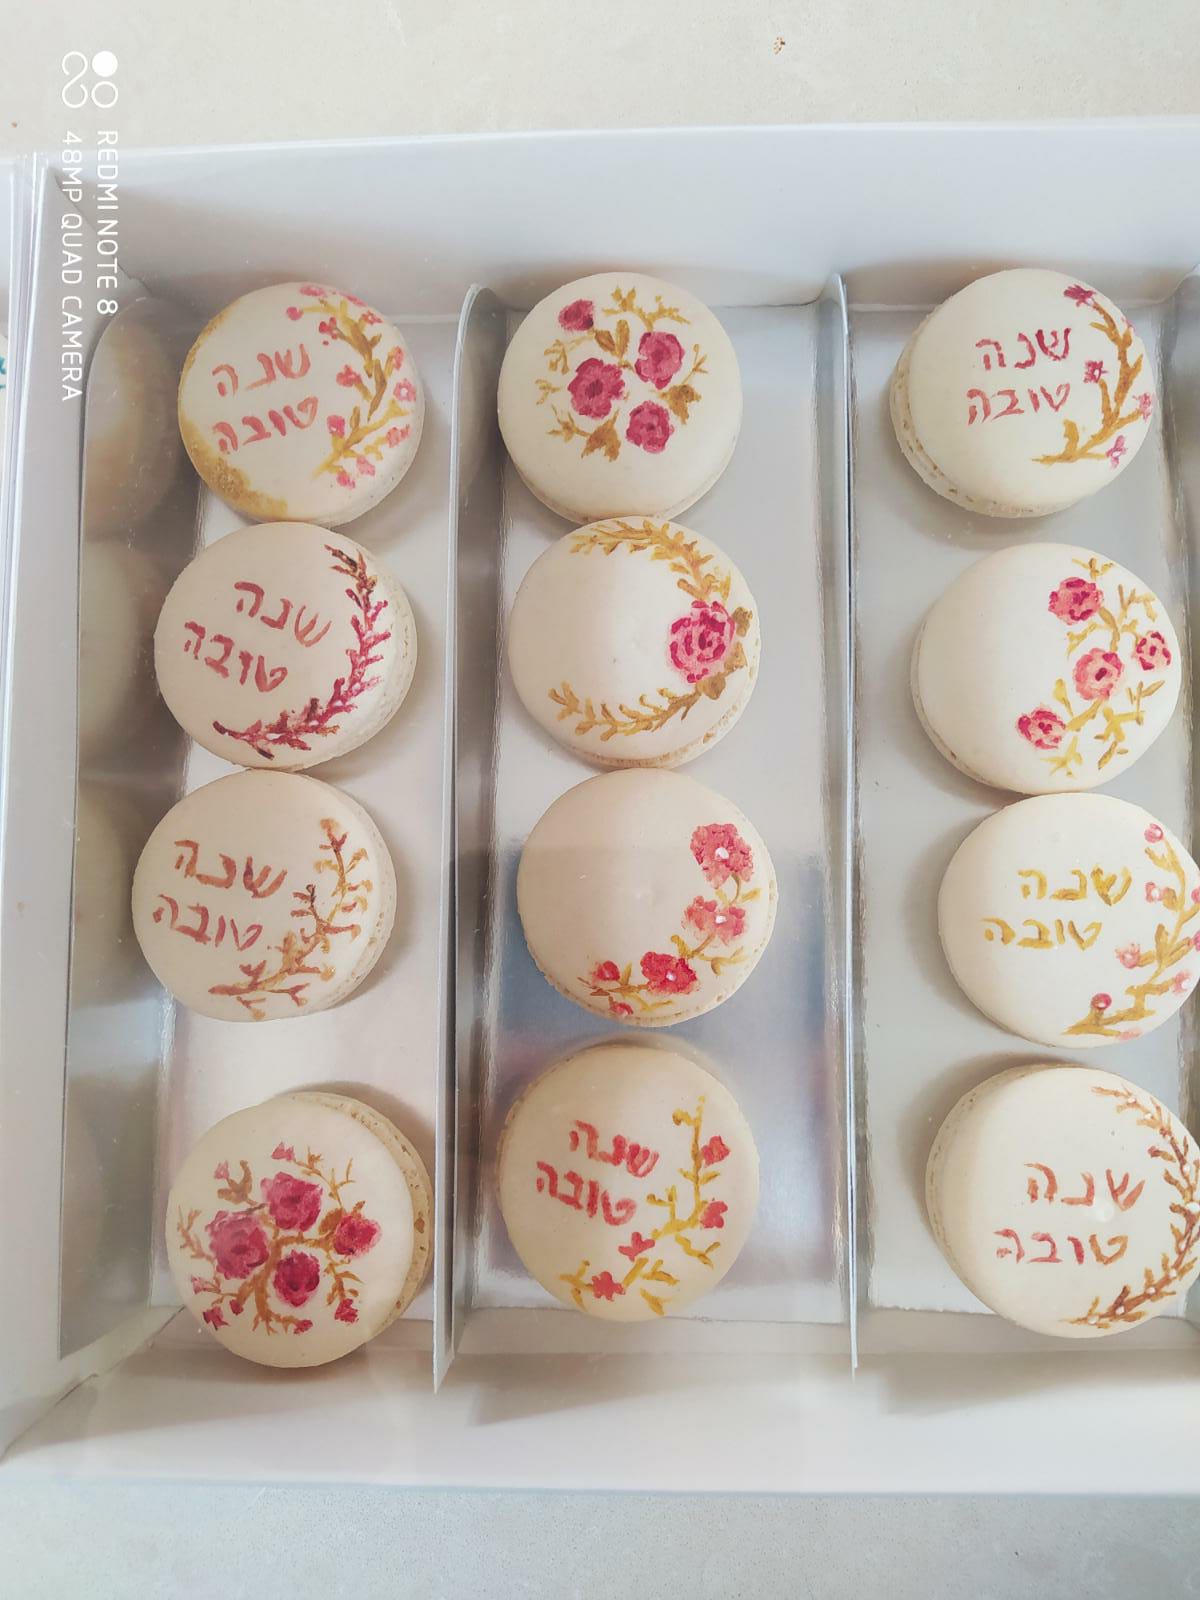 REDMI NOTE 8
48MP QUAD CAMERA
שנה
טובה
שנה
טובה
שנה
טובה
שנה
טובה
שנה
טובה
שנה
טובה
שנה
טובה